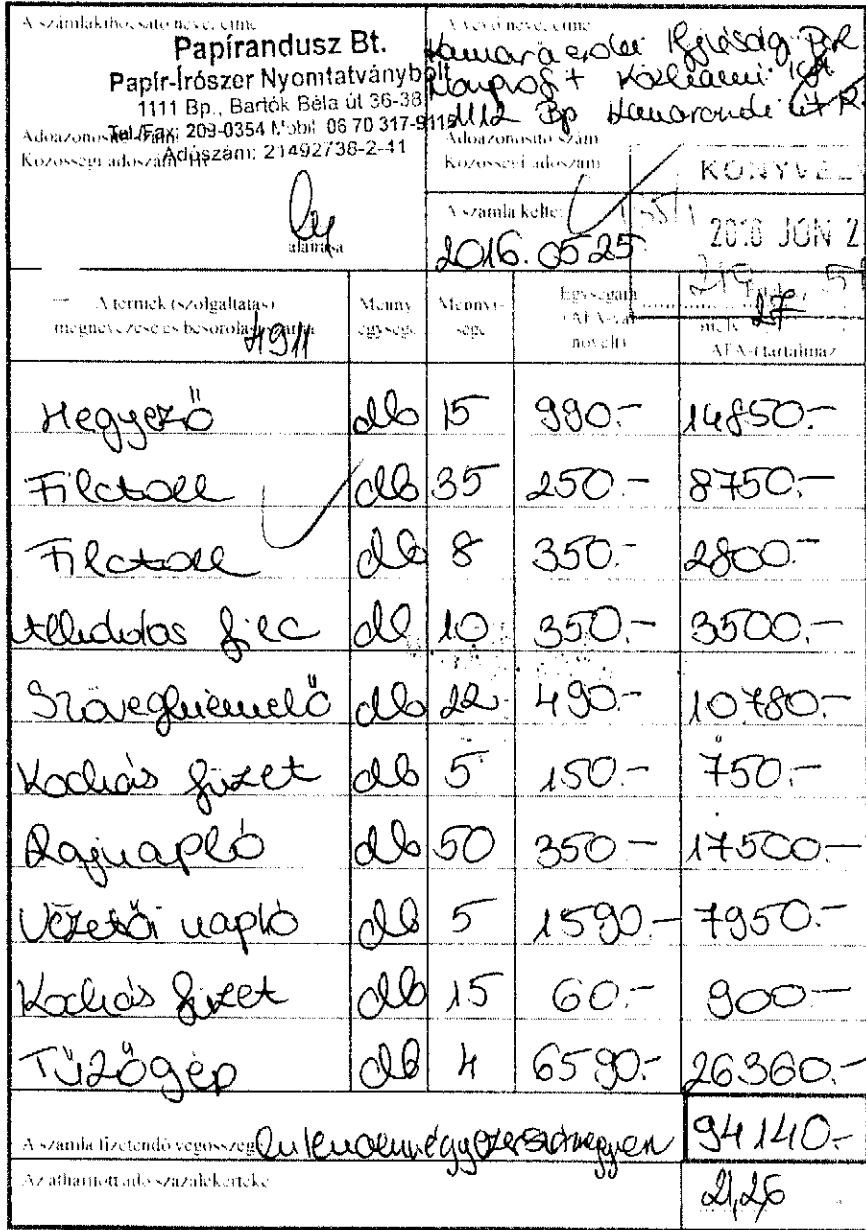 A számlakibocsátó neve, címe
Papírandusz Bt.
Papír-Írószer Nyomtatványbolt
1111 Bp., Bartók Béla út 36-38
Tel./Fax: 209-0354 Mobil: 06 70 317-9115
Adószám: 21492738-2-41
Közösségi adószám: HU
aláírása
A vevő neve, címe
Kamaraerdei Ifjúsági Park
Nonprofit Közhasznú Kft
1112 Bp Kamaraerdei út
Adóazonosító szám
Közösségi adószám
A számla kelte:
2016.05.25.
KÖNYVEL
JÚN 2
A termék (szolgáltatás) megnevezése és besorolási száma
4911
Menny. egység
Mennyiség
Egységár (ÁFA-val növelt)
mely 27 ÁFA-t tartalmaz
Hegyező db 15 990.- 14850.-
Filctoll db 35 250.- 8750.-
Filctoll db 8 350.- 2800.-
Alkoholos filc db 10 350.- 3500.-
Szövegkiemelő db 22 490.- 10780.-
Kockás füzet db 5 150.- 750.-
Rajznapló db 50 350.- 17500.-
Vezetői napló db 5 1590.- 7950.-
Kockás füzet db 15 60.- 900.-
Tűzőgép db 4 6590.- 26360.-
A számla fizetendő végösszege kilencvennégyezerszáznegyven 94140.-
Az áthárított adó százalékértéke 21,26